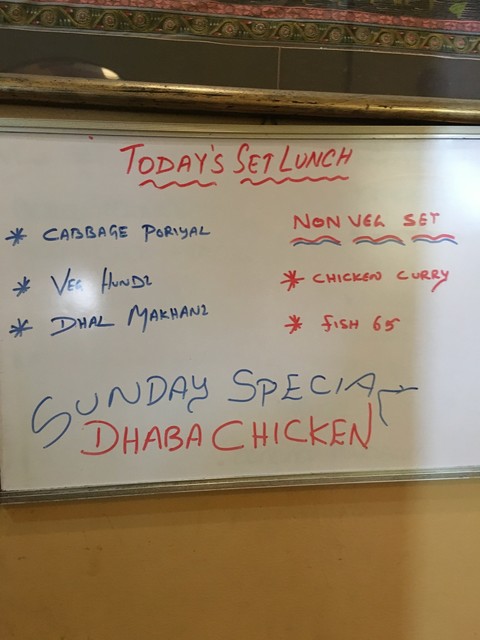 TODAY'S SET LUNCH
* CABBAGE PORIYAL
* VEG HUNDI
* DHAL MAKHANI
NON VEG SET
* CHICKEN CURRY
* FISH 65
SUNDAY SPECIAL
DHABA CHICKEN